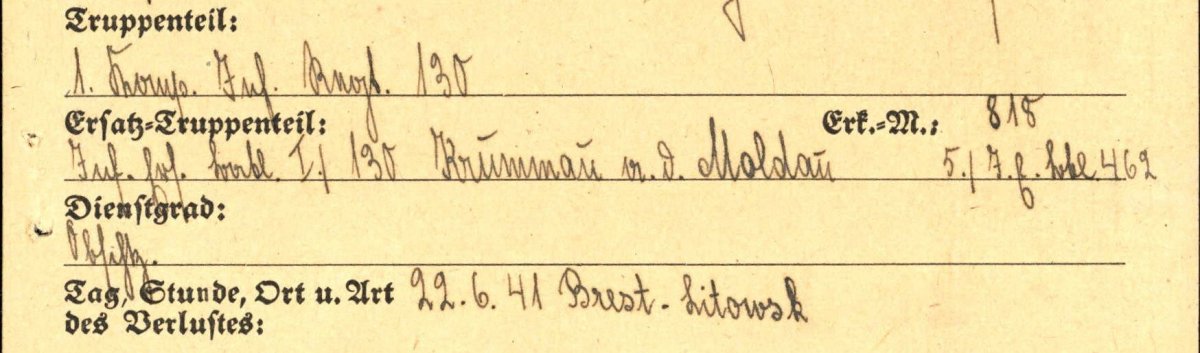 Truppenteil:
1. Komp. Inf. Regt. 130
Ersatz-Truppenteil: Erk.-M.: 818
Inf. Ers. Batl. I/130 Krummau a. d. Moldau 5./J. E. Btl. 462
Dienstgrad:
Obschtz.
Tag, Stunde, Ort u. Art 22.6.41 Brest-Litowsk
des Verlustes: